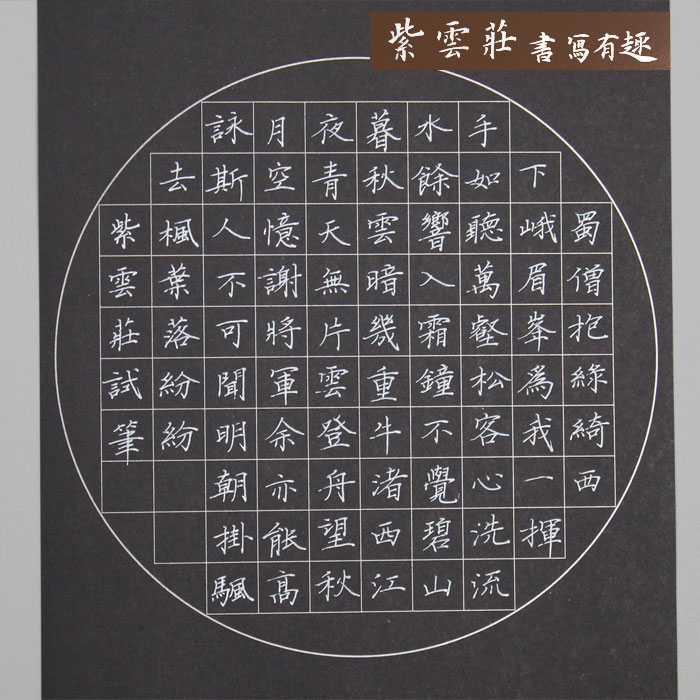 紫雲莊 書寫有趣
蜀僧抱綠綺西
下峨眉峯爲我一揮
手如聽萬壑松客心洗流
水餘響入霜鐘不覺碧山
暮秋雲暗幾重牛渚西江
夜青天無片雲登舟望秋
月空憶謝將軍余亦能高
詠斯人不可聞明朝掛颿
去楓葉落紛紛
紫雲莊試筆